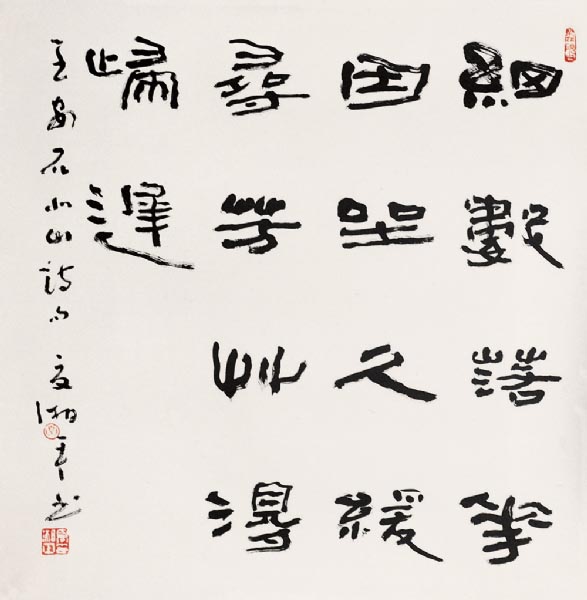 細數落華
因坐久緩
尋芳艸得
歸遲
王安石北山詩句 夏湘平书